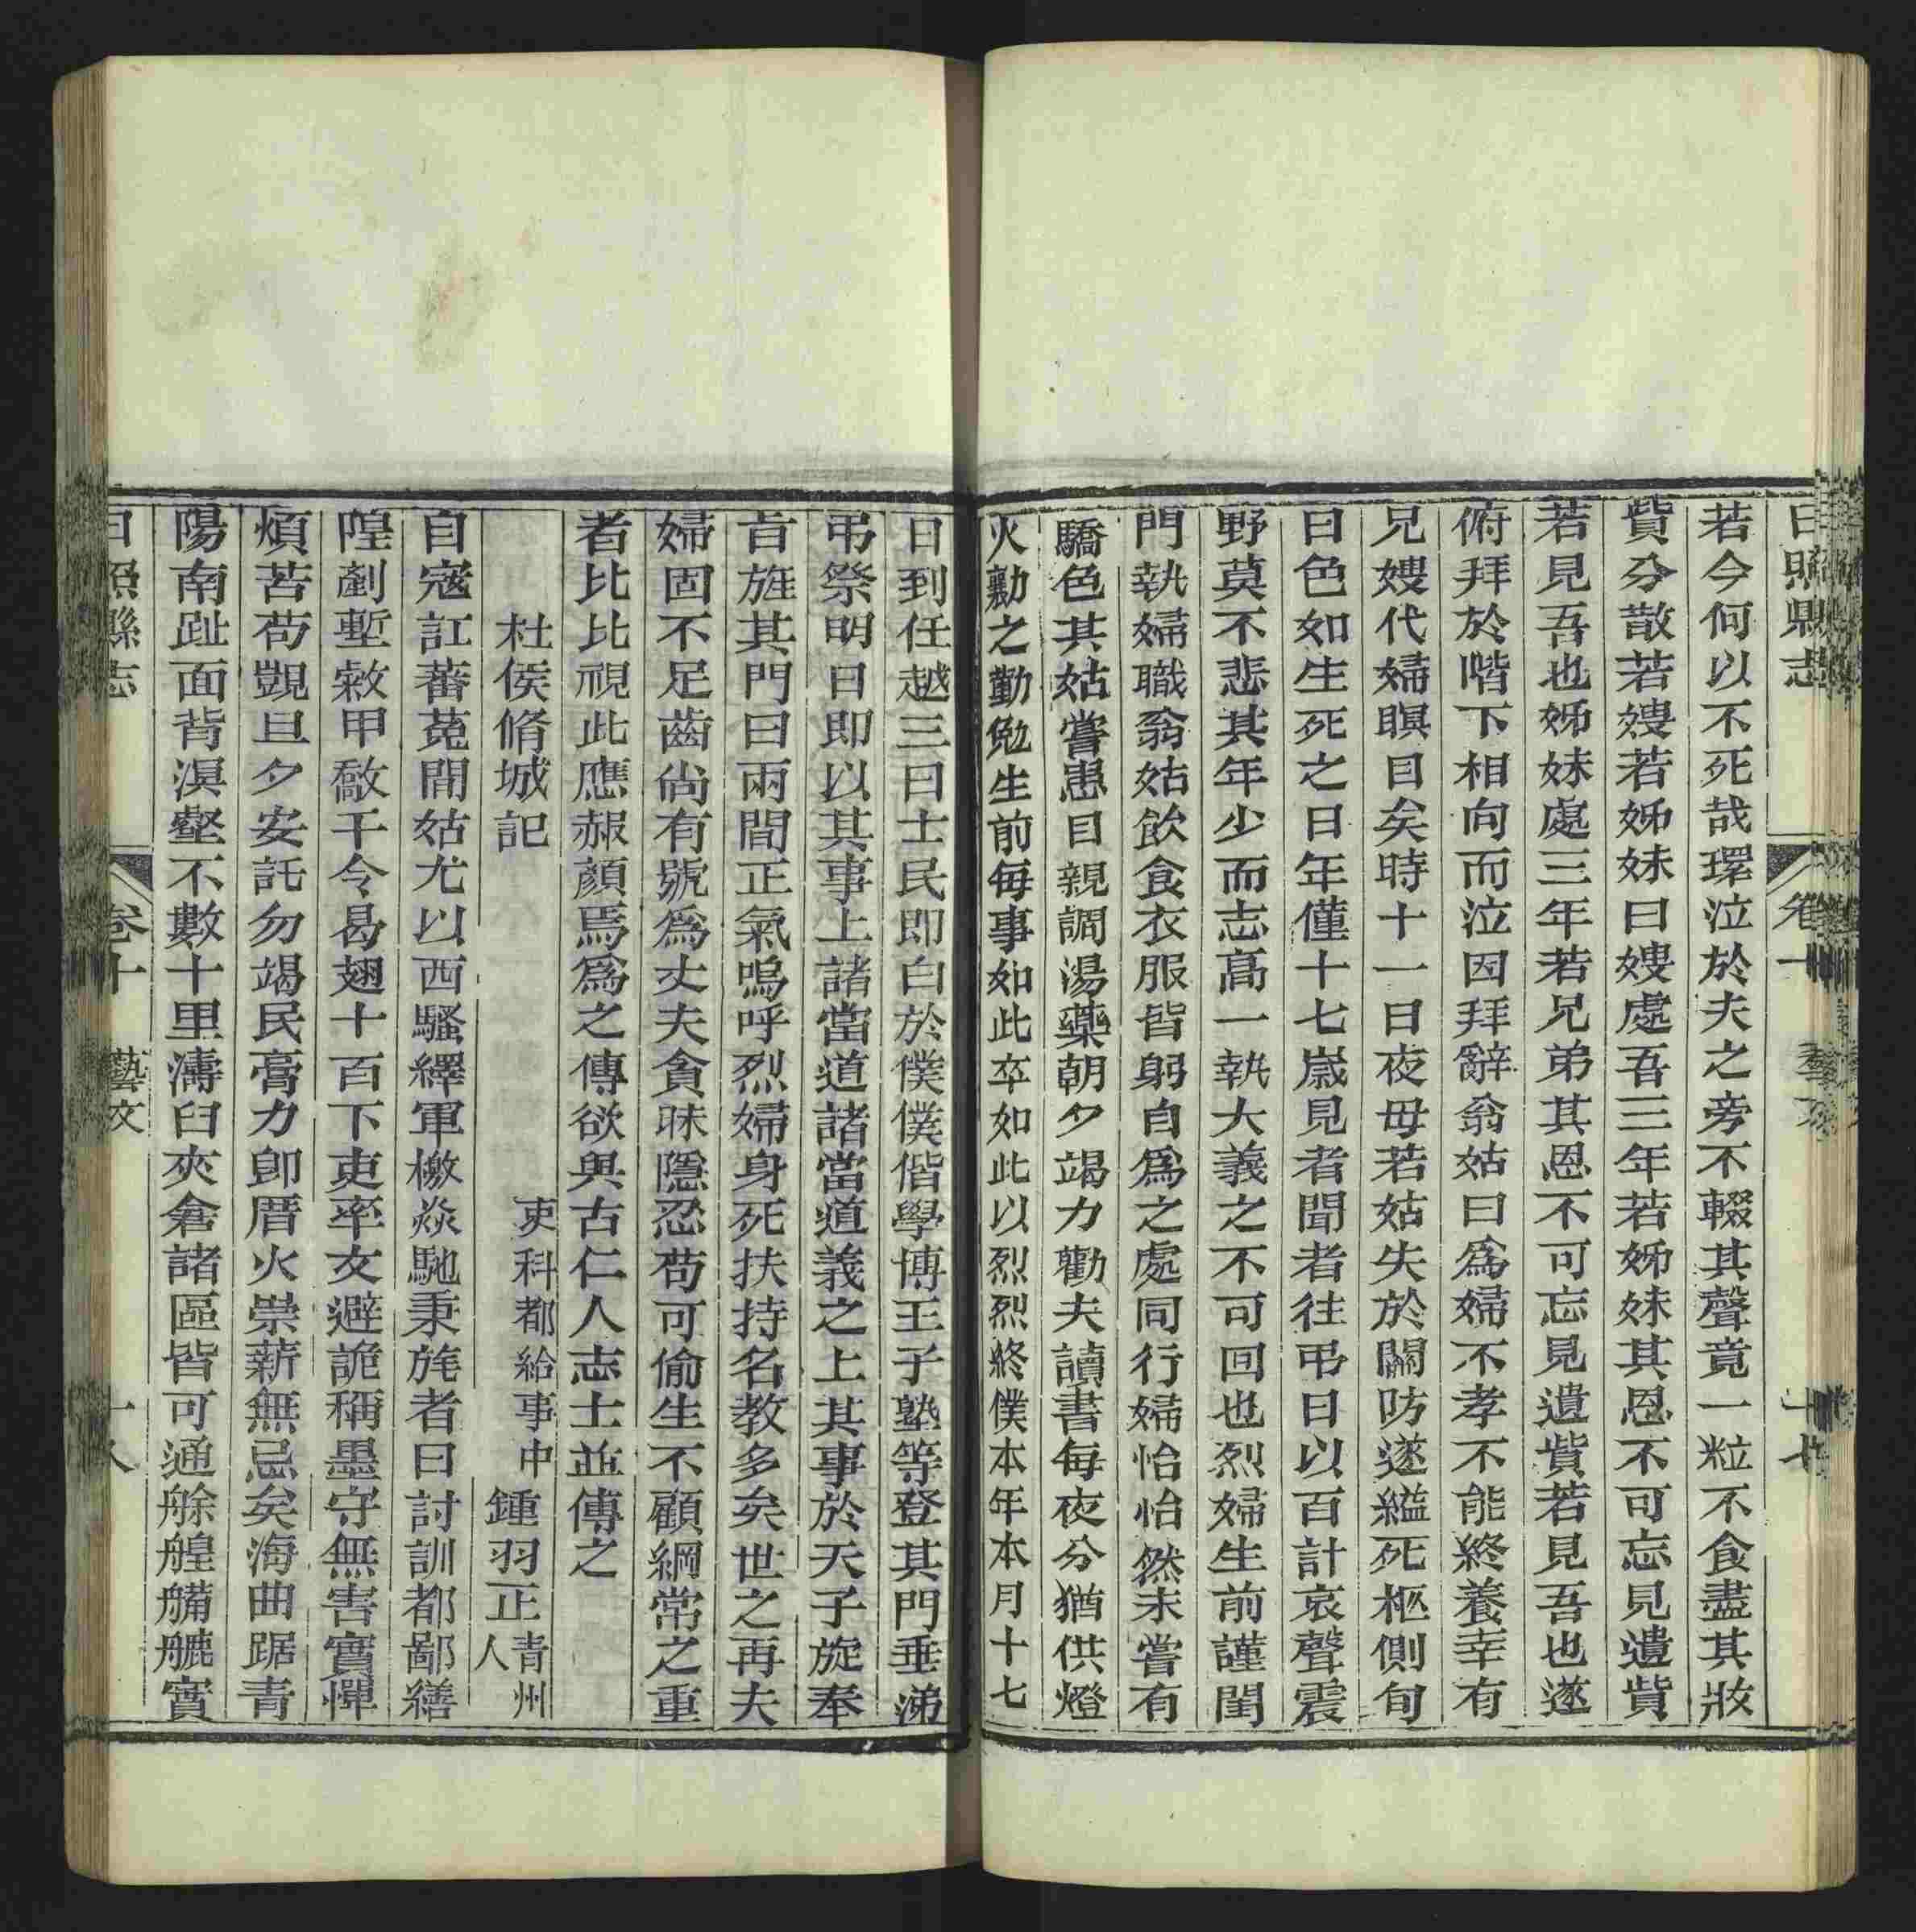 日照縣志 卷十 藝文 十七
若今何以不死哉環泣於夫之旁不輟其聲竟一粒不食盡其妝
貲分散若嫂若姊妹曰嫂處吾三年若姊妹其恩不可忘見遺貲
若見吾也姊妹處三年若兄弟其恩不可忘見遺貲若見吾也遂
俯拜於階下相向而泣因拜辭翁姑曰爲婦不孝不能終養幸有
兄嫂代婦瞑目矣時十一日夜母若姑失於關防遂縊死柩側旬
日色如生死之日年僅十七歲見者聞者往弔日以百計哀聲震
野莫不悲其年少而志高一執大義之不可回也烈婦生前謹閨
門執婦職翁姑飲食衣服皆躬自爲之處同行婦怡怡然未嘗有
驕色其姑嘗患目親調湯藥朝夕竭力勸夫讀書每夜分猶供燈
火勷之勤勉生前每事如此卒如此以烈烈終僕本年本月十七
日到任越三日士民即白於僕僕偕學博王子塾等登其門垂涕
弔祭明日即以其事上諸當道諸當道義之上其事於天子旋奉
㫖旌其門曰兩間正氣嗚呼烈婦身死扶持名教多矣世之再夫
婦固不足齒尙有號爲丈夫貪昧隱忍苟可偷生不顧綱常之重
者比比視此應赧顏焉爲之傳欲與古仁人志士並傳之
杜侯脩城記
吏科都給事中 鍾羽正 青州人
自寇訌蕃菟間姑尤以西騷繹軍檄焱馳秉旄者曰討訓都鄙繕
隍剷塹敹甲敿干令曷翅十百下吏率文避詭稱墨守無害實憚
煩苦苟覬旦夕安託勿竭民膏力卽厝火祟薪無忌矣海曲踞青
陽南趾面背溟壑不數十里濤臼夾倉諸區皆可通艅艎艜艍實
日照縣志 卷十 藝文 十八